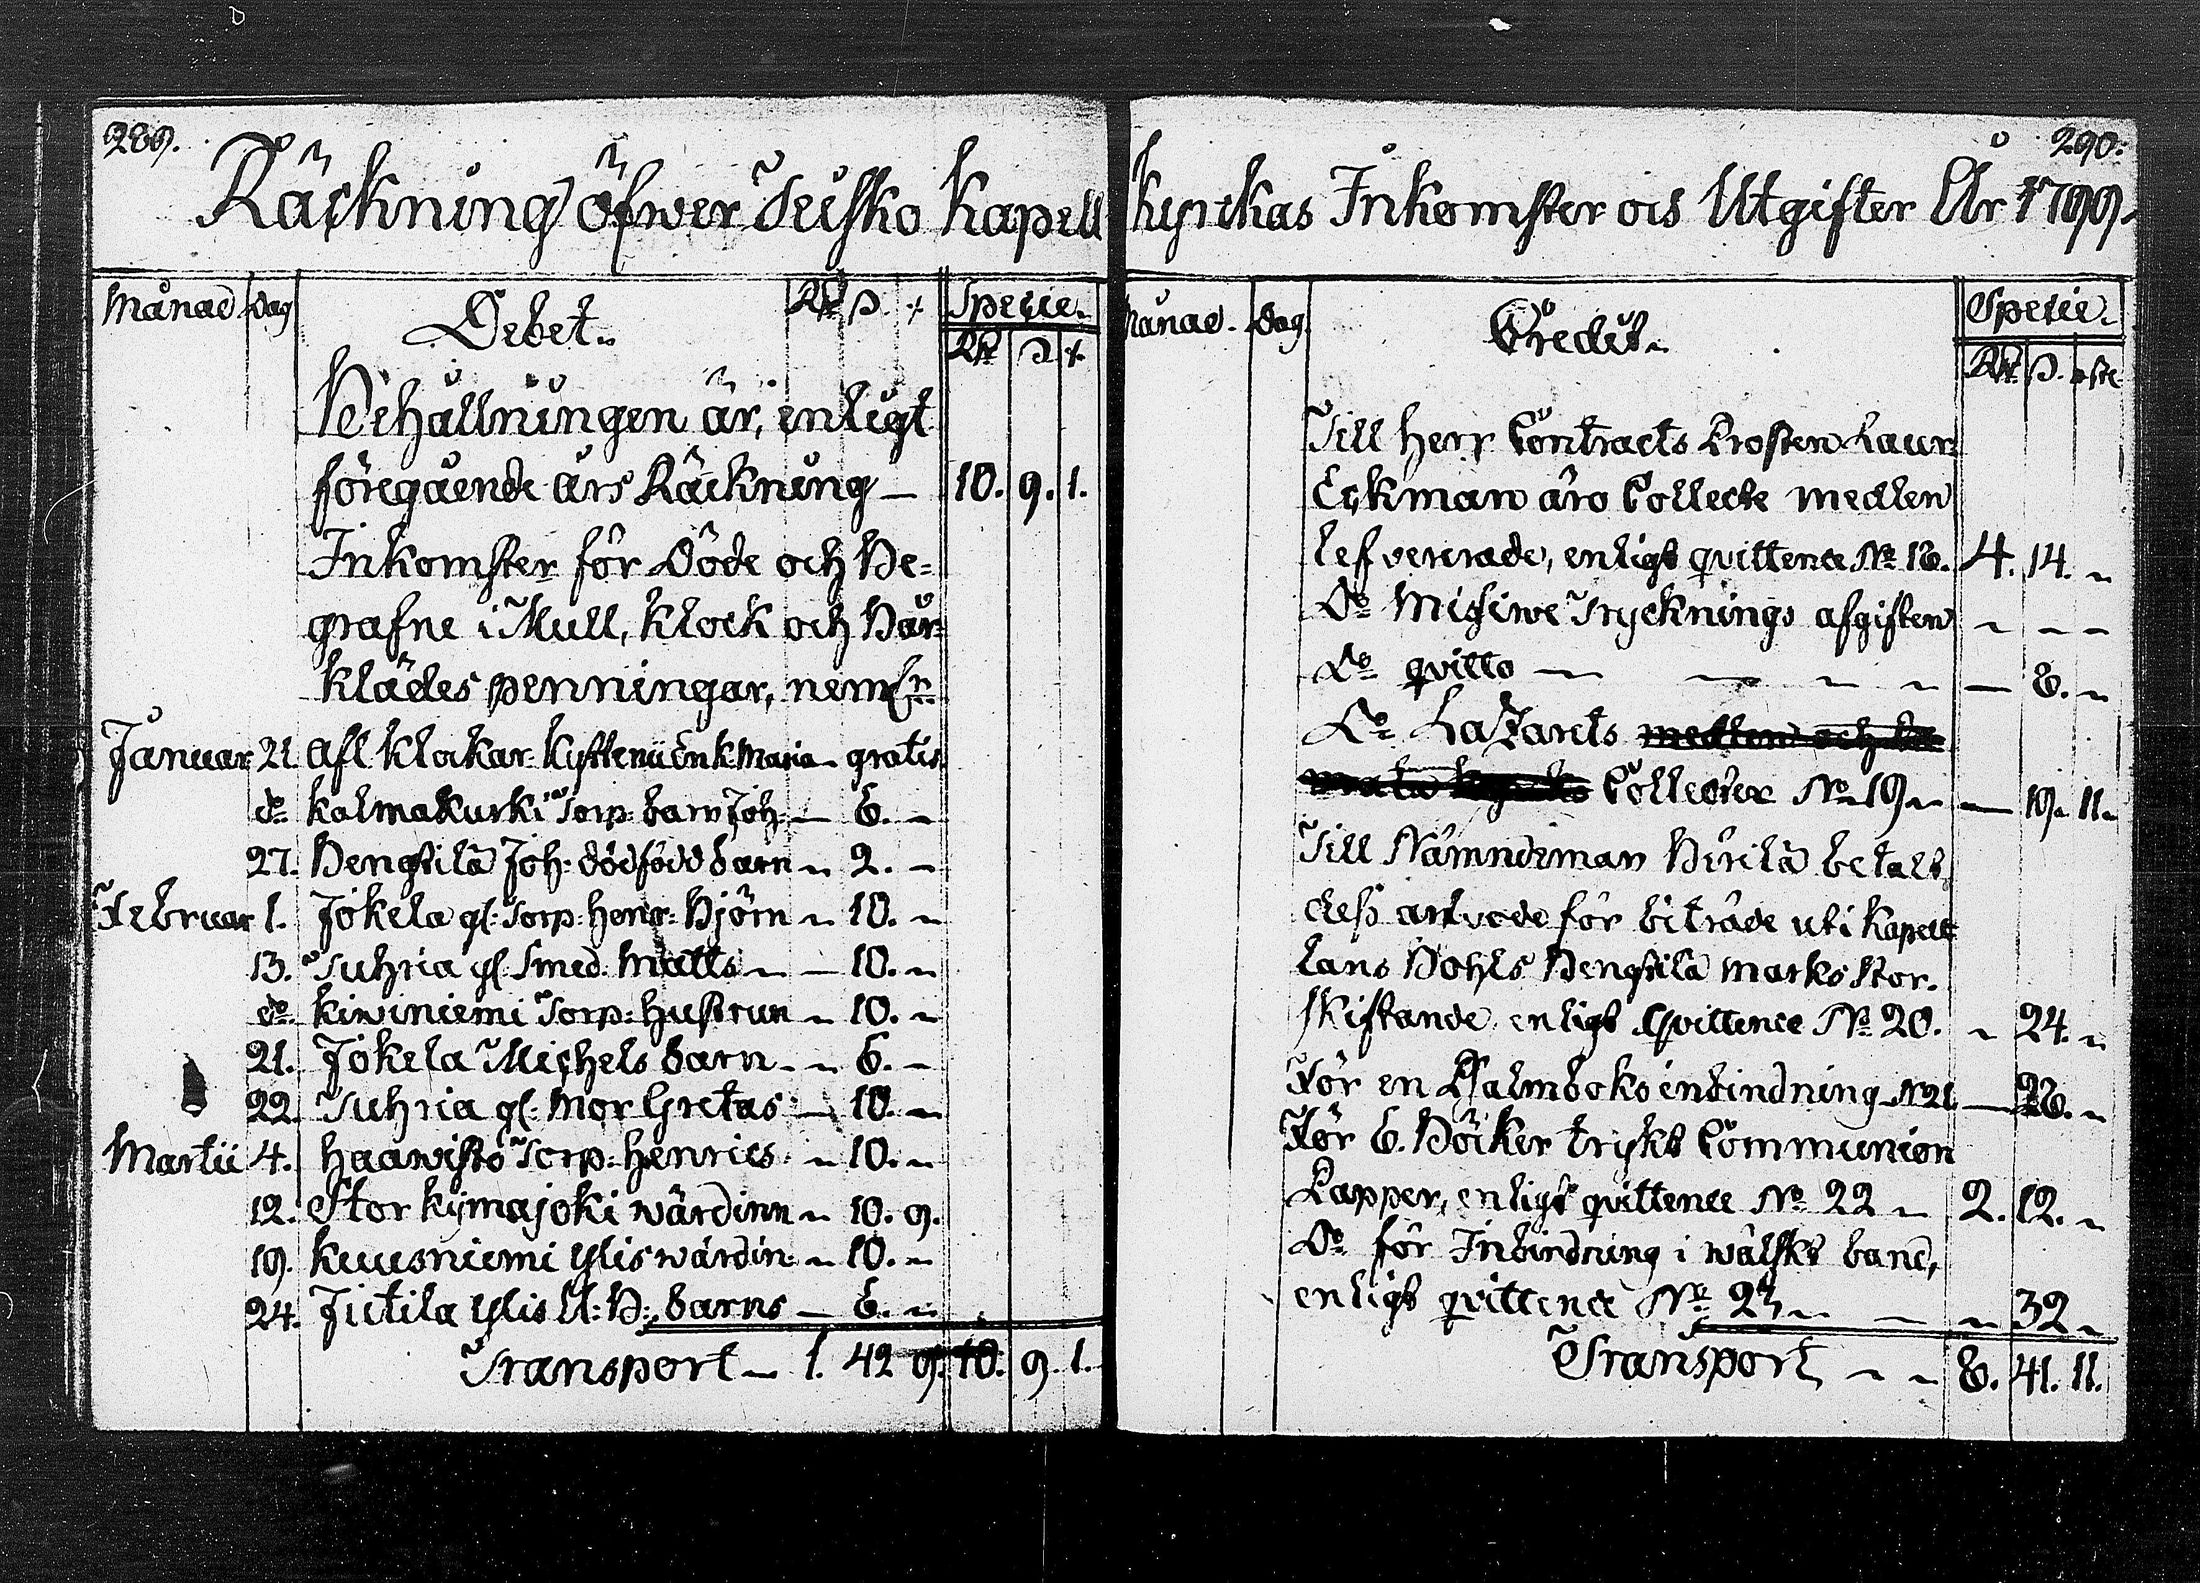 289.
Räckning öfwer Teisko Kapell
Månad Dag Debet. Rd ß. Specie.
Rd ß
Behållningen är, enligt
föregående års Räckning — 10. 9. 1.
Inkomster för Döde och Be-
grafne i Mull, Klock och Bår-
klädes penningar, neml:n
Januar 21 afl Klockar Kyttenii Enk. Maria gratis
do Kalmakurki Torp: barn Joh: — 6. —
27. Hengstilä Joh: dödfödd barn — 2. —
Februar 1. Jokela gl: Torp: Henr: Björn — 10. —
13. Tuhria gl. Smed Matts — 10. —
do Kiwiniemi Torp: hustrun — 10. —
21. Jokela Michels barn — 6. —
22 Tuhria gl: Mor Gretas — 10. —
Martii 4. Haawisto Torp: Henrics — 10. —
12. Stor Kymajoki wärdinn — 10. 9.
19. Kuusniemi Ylis wärdin: — 10. —
24. Jutila Ylis barns — 6. —
Transport — 1. 42 9. 10. 9. 1.
290.
Kyrckas Inkomster och Utgifter År 1799.
Månad. Dag. Credit. Specie.
Rd. ß.
Till Herr Contracts Prosten Laur:
Eckman äro Collecte medlen
lefvererade, enligt qvittence No 18. 4. 14. —
Do Missiwe Trycknings afgiften — — —
Do qvitto — — — — — 8. —
Do Lazarets medlen och
Collecten No 19 — — 19. 11.
Till Nämndeman Hirilä betalt
dess arfvode för biträde uti Kapell
lans Bohls Hengstilä marks stor-
skiftande, enligt Qvittence No 20. — 24. —
För en Psalmboks inbindning N 21 — 28. —
För 6. Böcker tryckt Communion
Papper, enligt qvittence No 22 — 2. 12. —
Do för Inbindning i wälskt band,
enligt qvittence No 23 — — — 32 —
Transport — — 8. 41. 11.